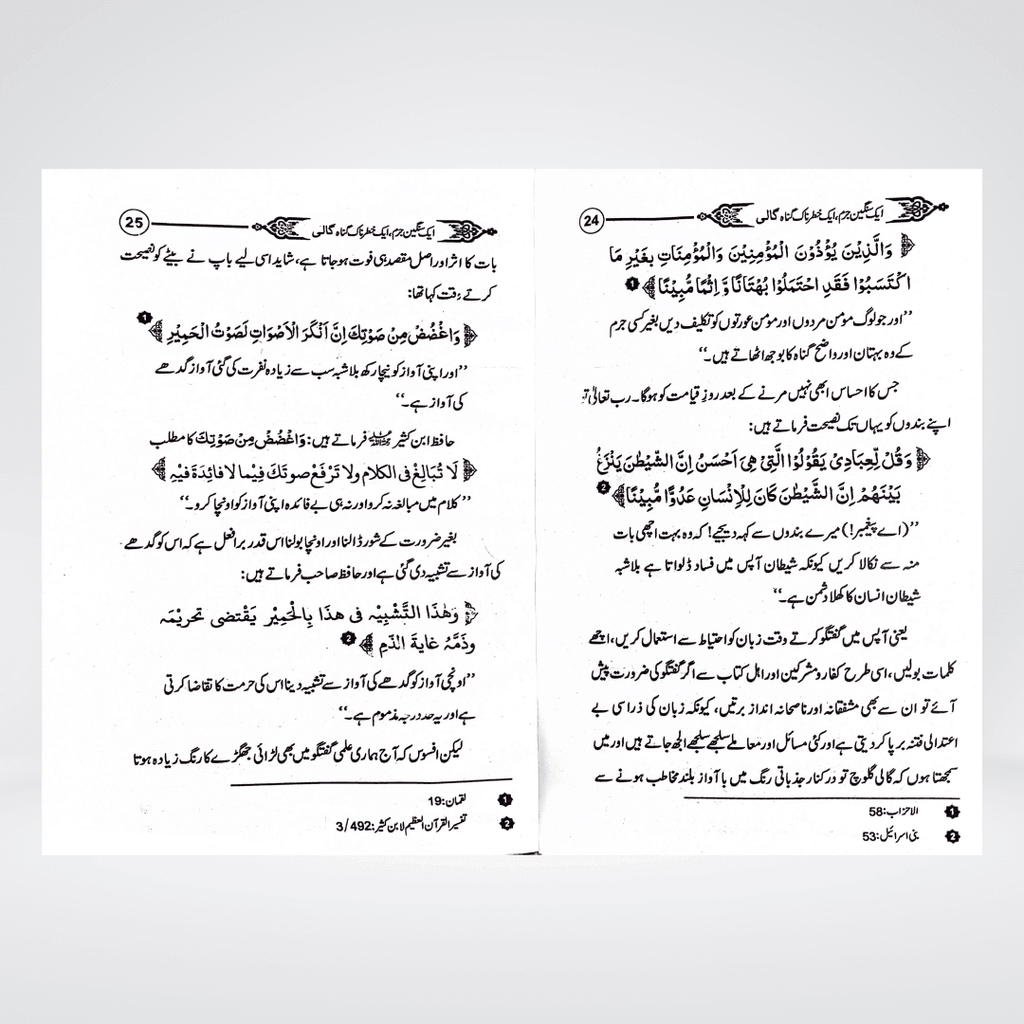 ایک سنگین جرم، ایک خطرناک گناہ گالی 24
﴿ وَالَّذِيْنَ يُؤْذُوْنَ الْمُؤْمِنِيْنَ وَالْمُؤْمِنَاتِ بِغَيْرِ مَا
اكْتَسَبُوْا فَقَدِ احْتَمَلُوْا بُهْتَانًا وَّ اِثْمًا مُّبِيْنًا ﴾ ❶
’’اور جو لوگ مومن مردوں اور مومن عورتوں کو تکلیف دیں بغیر کسی جرم
کے وہ بہتان اور واضح گناہ کا بوجھ اٹھاتے ہیں۔‘‘
جس کا احساس ابھی نہیں مرنے کے بعد روزِ قیامت کو ہوگا۔ رب تعالیٰ تو
اپنے بندوں کو یہاں تک نصیحت فرماتے ہیں:
﴿ وَقُلْ لِّعِبَادِيْ يَقُوْلُوْا الَّتِيْ هِيَ اَحْسَنُ اِنَّ الشَّيْطٰنَ يَنْزَغُ
بَيْنَهُمْ اِنَّ الشَّيْطٰنَ كَانَ لِلْاِنْسَانِ عَدُوًّا مُّبِيْنًا ﴾ ❷
’’(اے پیغمبر!) میرے بندوں سے کہہ دیجیے! کہ وہ بہت اچھی بات
منہ سے نکالا کریں کیونکہ شیطان آپس میں فساد ڈلواتا ہے بلاشبہ
شیطان انسان کا کھلا دشمن ہے۔‘‘
یعنی آپس میں گفتگو کرتے وقت زبان کو احتیاط سے استعمال کریں، اچھے
کلمات بولیں، اسی طرح کفار و مشرکین اور اہل کتاب سے اگر گفتگو کی ضرورت پیش
آئے تو ان سے بھی مشفقانہ اور ناصحانہ انداز برتیں، کیونکہ زبان کی ذرا سی بے
اعتدالی فتنہ برپا کر دیتی ہے اور کئی مسائل اور معاملے سلجھے سلجھے الجھ جاتے ہیں اور میں
سمجھتا ہوں کہ گالی گلوچ تو درکنار جذباتی رنگ میں با آواز بلند مخاطب ہونے سے
❶ الاحزاب: 58
❷ بنی اسرائیل: 53
ایک سنگین جرم، ایک خطرناک گناہ گالی 25
بات کا اثر اور اصل مقصد ہی فوت ہو جاتا ہے، شاید اسی لیے باپ نے بیٹے کو نصیحت
کرتے وقت کہا تھا:
﴿ وَاغْضُضْ مِنْ صَوْتِكَ اِنَّ اَنْكَرَ الْاَصْوَاتِ لَصَوْتُ الْحَمِيْرِ ﴾ ❶
’’اور اپنی آواز کو نیچا رکھ بلاشبہ سب سے زیادہ نفرت کی گئی آواز گدھے
کی آواز ہے۔‘‘
حافظ ابن کثیر رحمہ اللہ فرماتے ہیں: وَاغْضُضْ مِنْ صَوْتِكَ کا مطلب
﴿ لَا تُبَالِغْ فى الكلام ولا تَرْفَعْ صوتَكَ فِيْما لا فائدةَ فيهِ ﴾
’’کلام میں مبالغہ نہ کرو اور نہ ہی بے فائدہ اپنی آواز کو اونچا کرو۔‘‘
بغیر ضرورت کے شور ڈالنا اور اونچا بولنا اس قدر برا فعل ہے کہ اس کو گدھے
کی آواز سے تشبیہ دی گئی ہے اور حافظ صاحب فرماتے ہیں:
﴿ وَهٰذَا التَّشْبِيْه فى هذَا بِالْحَمِيْر يَقْتضى تحريْمَه
وذَمَّهُ غايةَ الذّمِ ﴾ ❷
’’اونچی آواز کو گدھے کی آواز سے تشبیہ دینا اس کی حرمت کا تقاضا کرتی
ہے اور یہ حد درجہ مذموم ہے۔‘‘
لیکن افسوس کہ آج ہماری علمی گفتگو میں بھی لڑائی جھگڑے کا رنگ زیادہ ہوتا
❶ لقمان: 19
❷ تفسیر القرآن العظیم لابن کثیر: 3/492